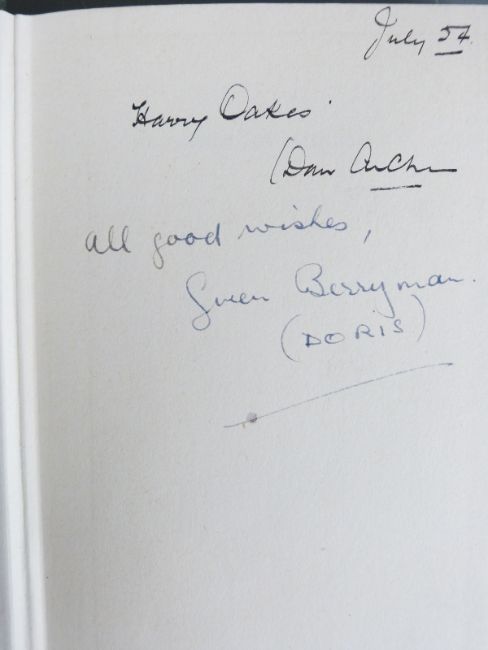 July 54.
Harry Oakes
(Dan Archer
All good wishes,
Gwen Berryman.
(DORIS)